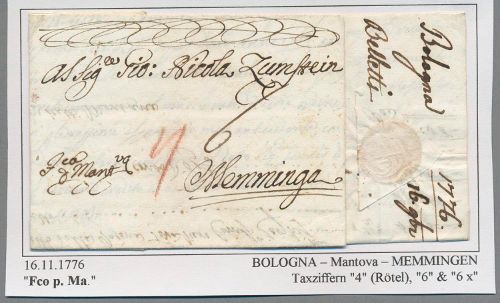 al Sig.e Gio: Nicola Zumstein
6
4
fco
d Mant.va
Memminga
Bologna
Belletti
1776
16. 9br
16.11.1776
"Fco p. Ma."
BOLOGNA – Mantova – MEMMINGEN
Taxziffern "4" (Rötel), "6" & "6 x"